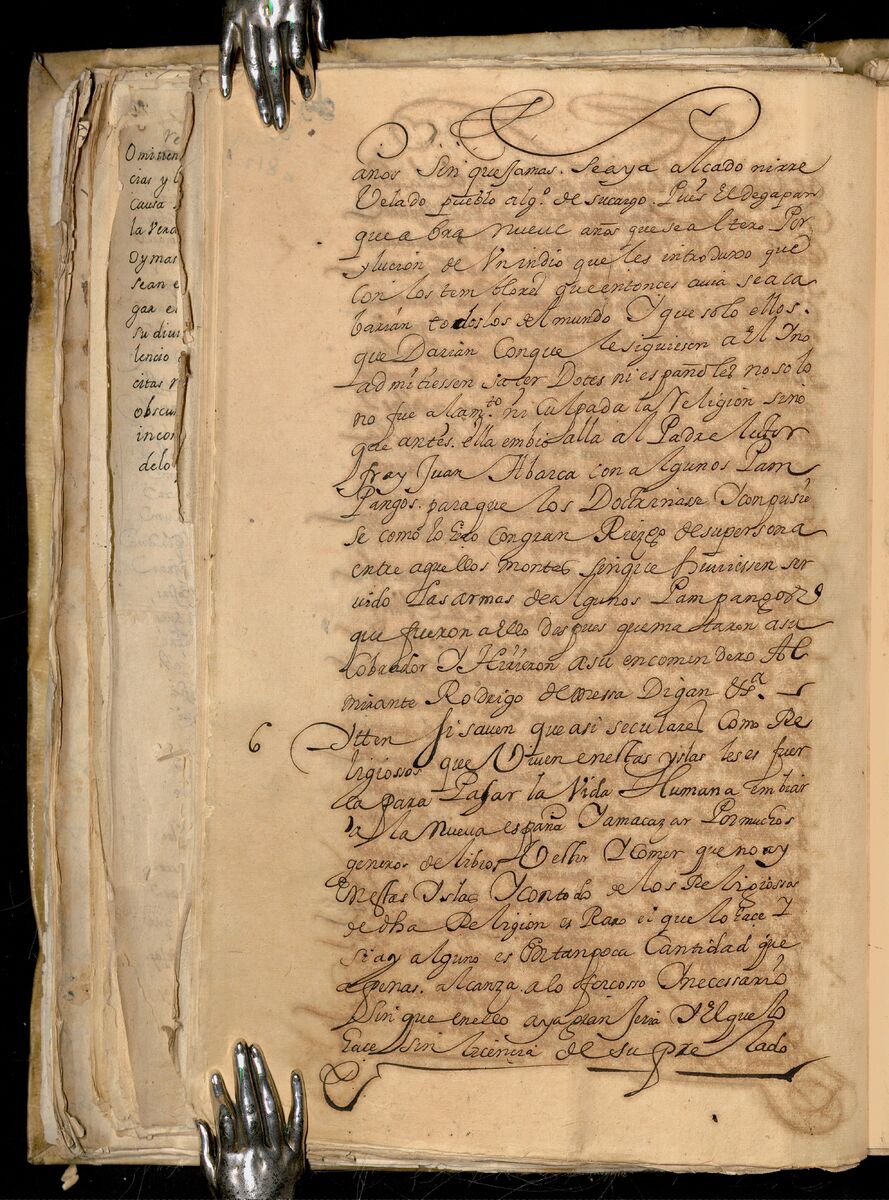 Omitien
cias y l
causa
la vera
Oymas
sean e
gar e
su diu
lencio
citas
obscu
incon
delo
años Sin que Jamas. Se aya alcado ni rre
Velado pueblo alg.º de sucargo. Pues El de gapan
que abra nueue años que se altero Por
ylucion de Vn indio que les introduxo que
Con los temblores que entonces auia se aca
barian todos los del mundo Y que solo ellos.
que Darian Con que le siguiesen a el Y no
admitiessen Sacer Dotes ni españoles no solo
no fue alam.to ni Culpada la Religion sino
que antes. ella embio alla al Padre letor
fray Juan Abarca con algunos Pam
Pangos. para que los Doctrinase Y conpusie
se como lo hiço Con gran Riezgo de su persona
entre aquellos montes Sin que huuiessen ser
uido las armas de algunos Pampangos
que fueron a ello Despues que mataron a su
Cobrador Y Hirieron a su encomendero Al
mirante Rodrigo de messa Digan &.ª
6 Ytten Si sauen que asi seculares Como Re
ligiosos que Viuen en estas yslas les es fuer
ca para Pasar la Vida Humana embiar
a la nueua españa Y a macazar Por muchos
generos de libros Vestir Y comer que no ay
En estas Yslas Y con todo de los Religiosos
de dha Religion es Raro el que lo hace Y
Si ay alguno es En tan poca Cantidad que
apenas. alcanza. a lo forcosso Y necessario
Sin que en ello aya Y El que lo
hace Sin licencia de su Prelado